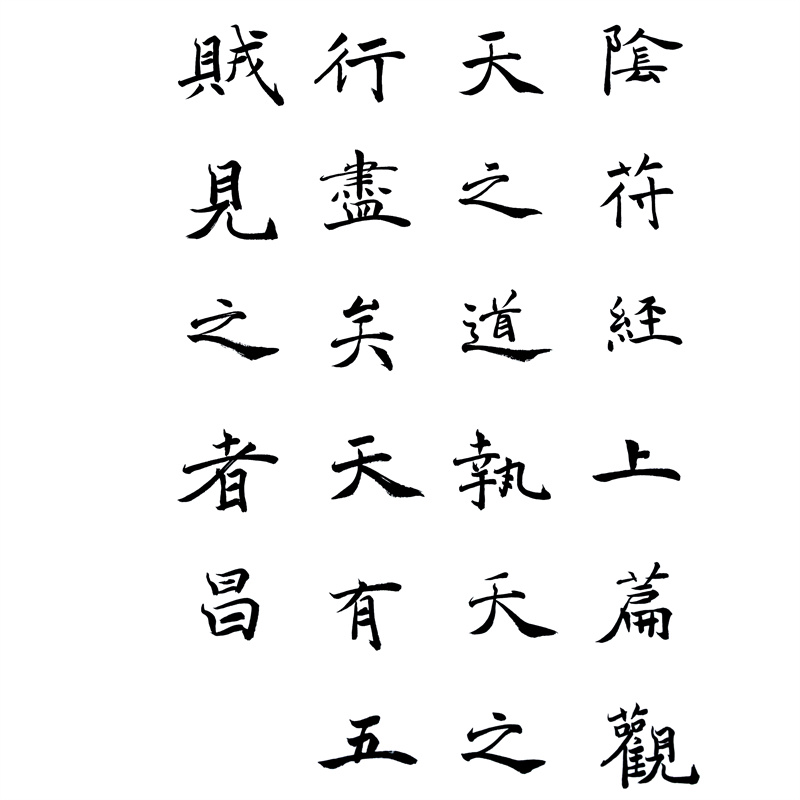 陰符經上篇觀
天之道執天之
行盡矣天有五
賊見之者昌